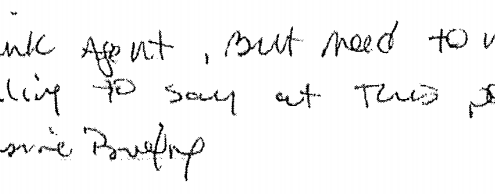 ink Agent, But need to
ling to say at This
Briefing